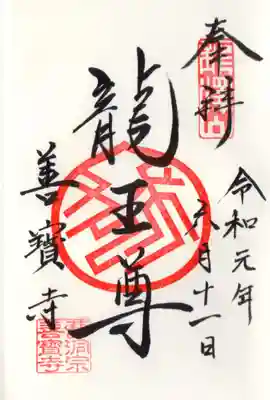 奉拝
令和元年
六月十一日
龍王尊
善寳寺
曹洞宗
善寳寺